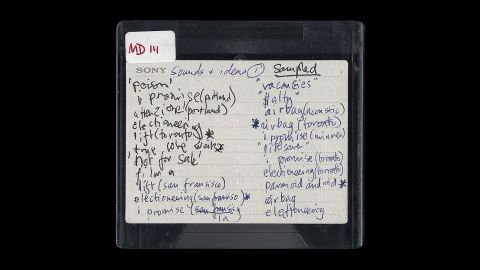 MD 14
SONY sounds + ideas ① Sampled
'poison'
i promise (portland)
attenz. one! (portland)
electioneering
lift (toronto) *
true love waits *
'Not for sale'
if i'm a
lift (san fransisco)
electioneering (san fransisco) *
i promise (san fransis
la)
"vacancies"
"faitu"
airbag (acoustic)
* airbag (toronto)
i promise (minnea)
"lifesaver"
i promise (toronto)
electioneering (toronto)
paranoid android *
airbag
electioneering